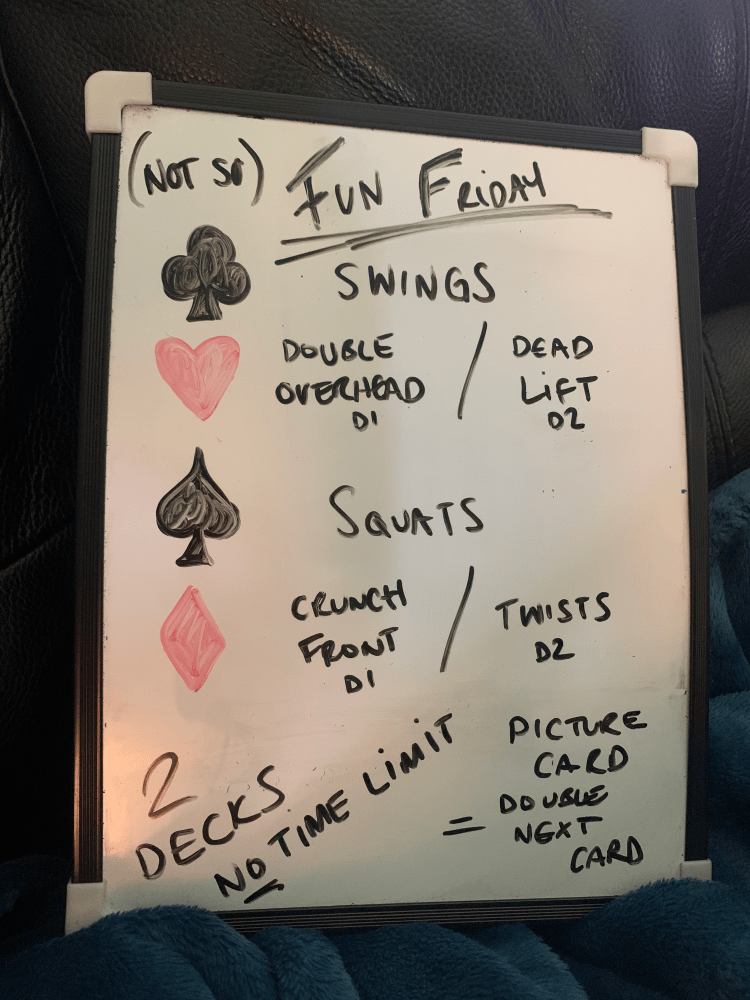 (NOT SO) FUN FRIDAY
SWINGS
DOUBLE OVERHEAD D1 / DEAD LIFT D2
SQUATS
CRUNCH FRONT D1 / TWISTS D2
2 DECKS
NO TIME LIMIT
PICTURE
CARD
= DOUBLE
NEXT
CARD